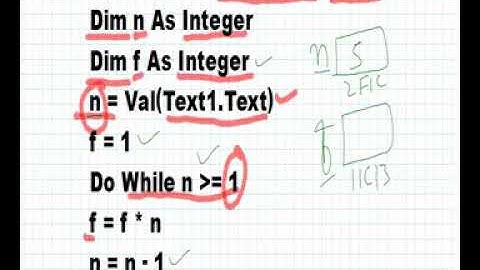 Dim n As Integer
Dim f As Integer
n = Val(Text1.Text)
f = 1
Do While n >= 1
f = f * n
n = n - 1
n 5
2F1C
f
11C13